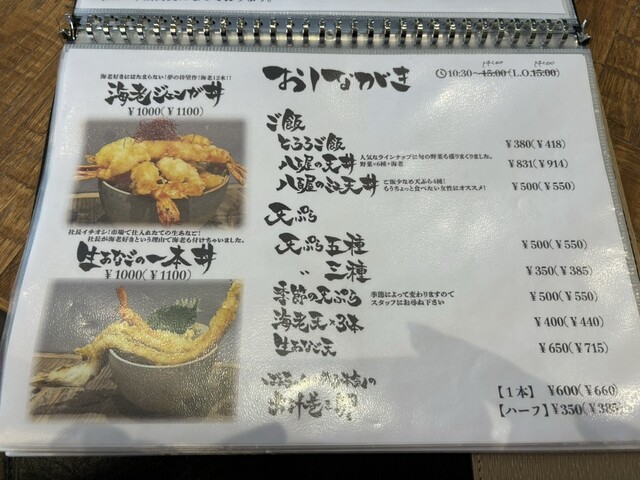 おしながき
14:00 14:00
10:30~15:00(L.O.15:00)
海老好きにはたまらない!夢の待望作!海老12本!!
海老ジェンガ丼
¥1000(¥1100)
社長イチオシ!市場で仕入れたての生あなご!
社長が海老好きという理由で海老も付けちゃいました。
生あなごの一本丼
¥1000(¥1100)
ご飯
とろろご飯 ¥380(¥418)
八屋の天丼 人気なラインナップに旬の野菜も盛りまくりました。
野菜×6種+海老 ¥831(¥914)
八屋の 天丼 ご飯少なめ天ぷら4種!
もうちょっと食べたい女性にオススメ! ¥500(¥550)
天ぷら
天ぷら五種 ¥500(¥550)
〃 三種 ¥350(¥385)
季節の天ぷら 季節によって変わりますので
スタッフにお尋ね下さい ¥500(¥550)
海老天×3本 ¥400(¥440)
生あなご天 ¥650(¥715)
【1本】 ¥600(¥660)
【ハーフ】¥350(¥385)